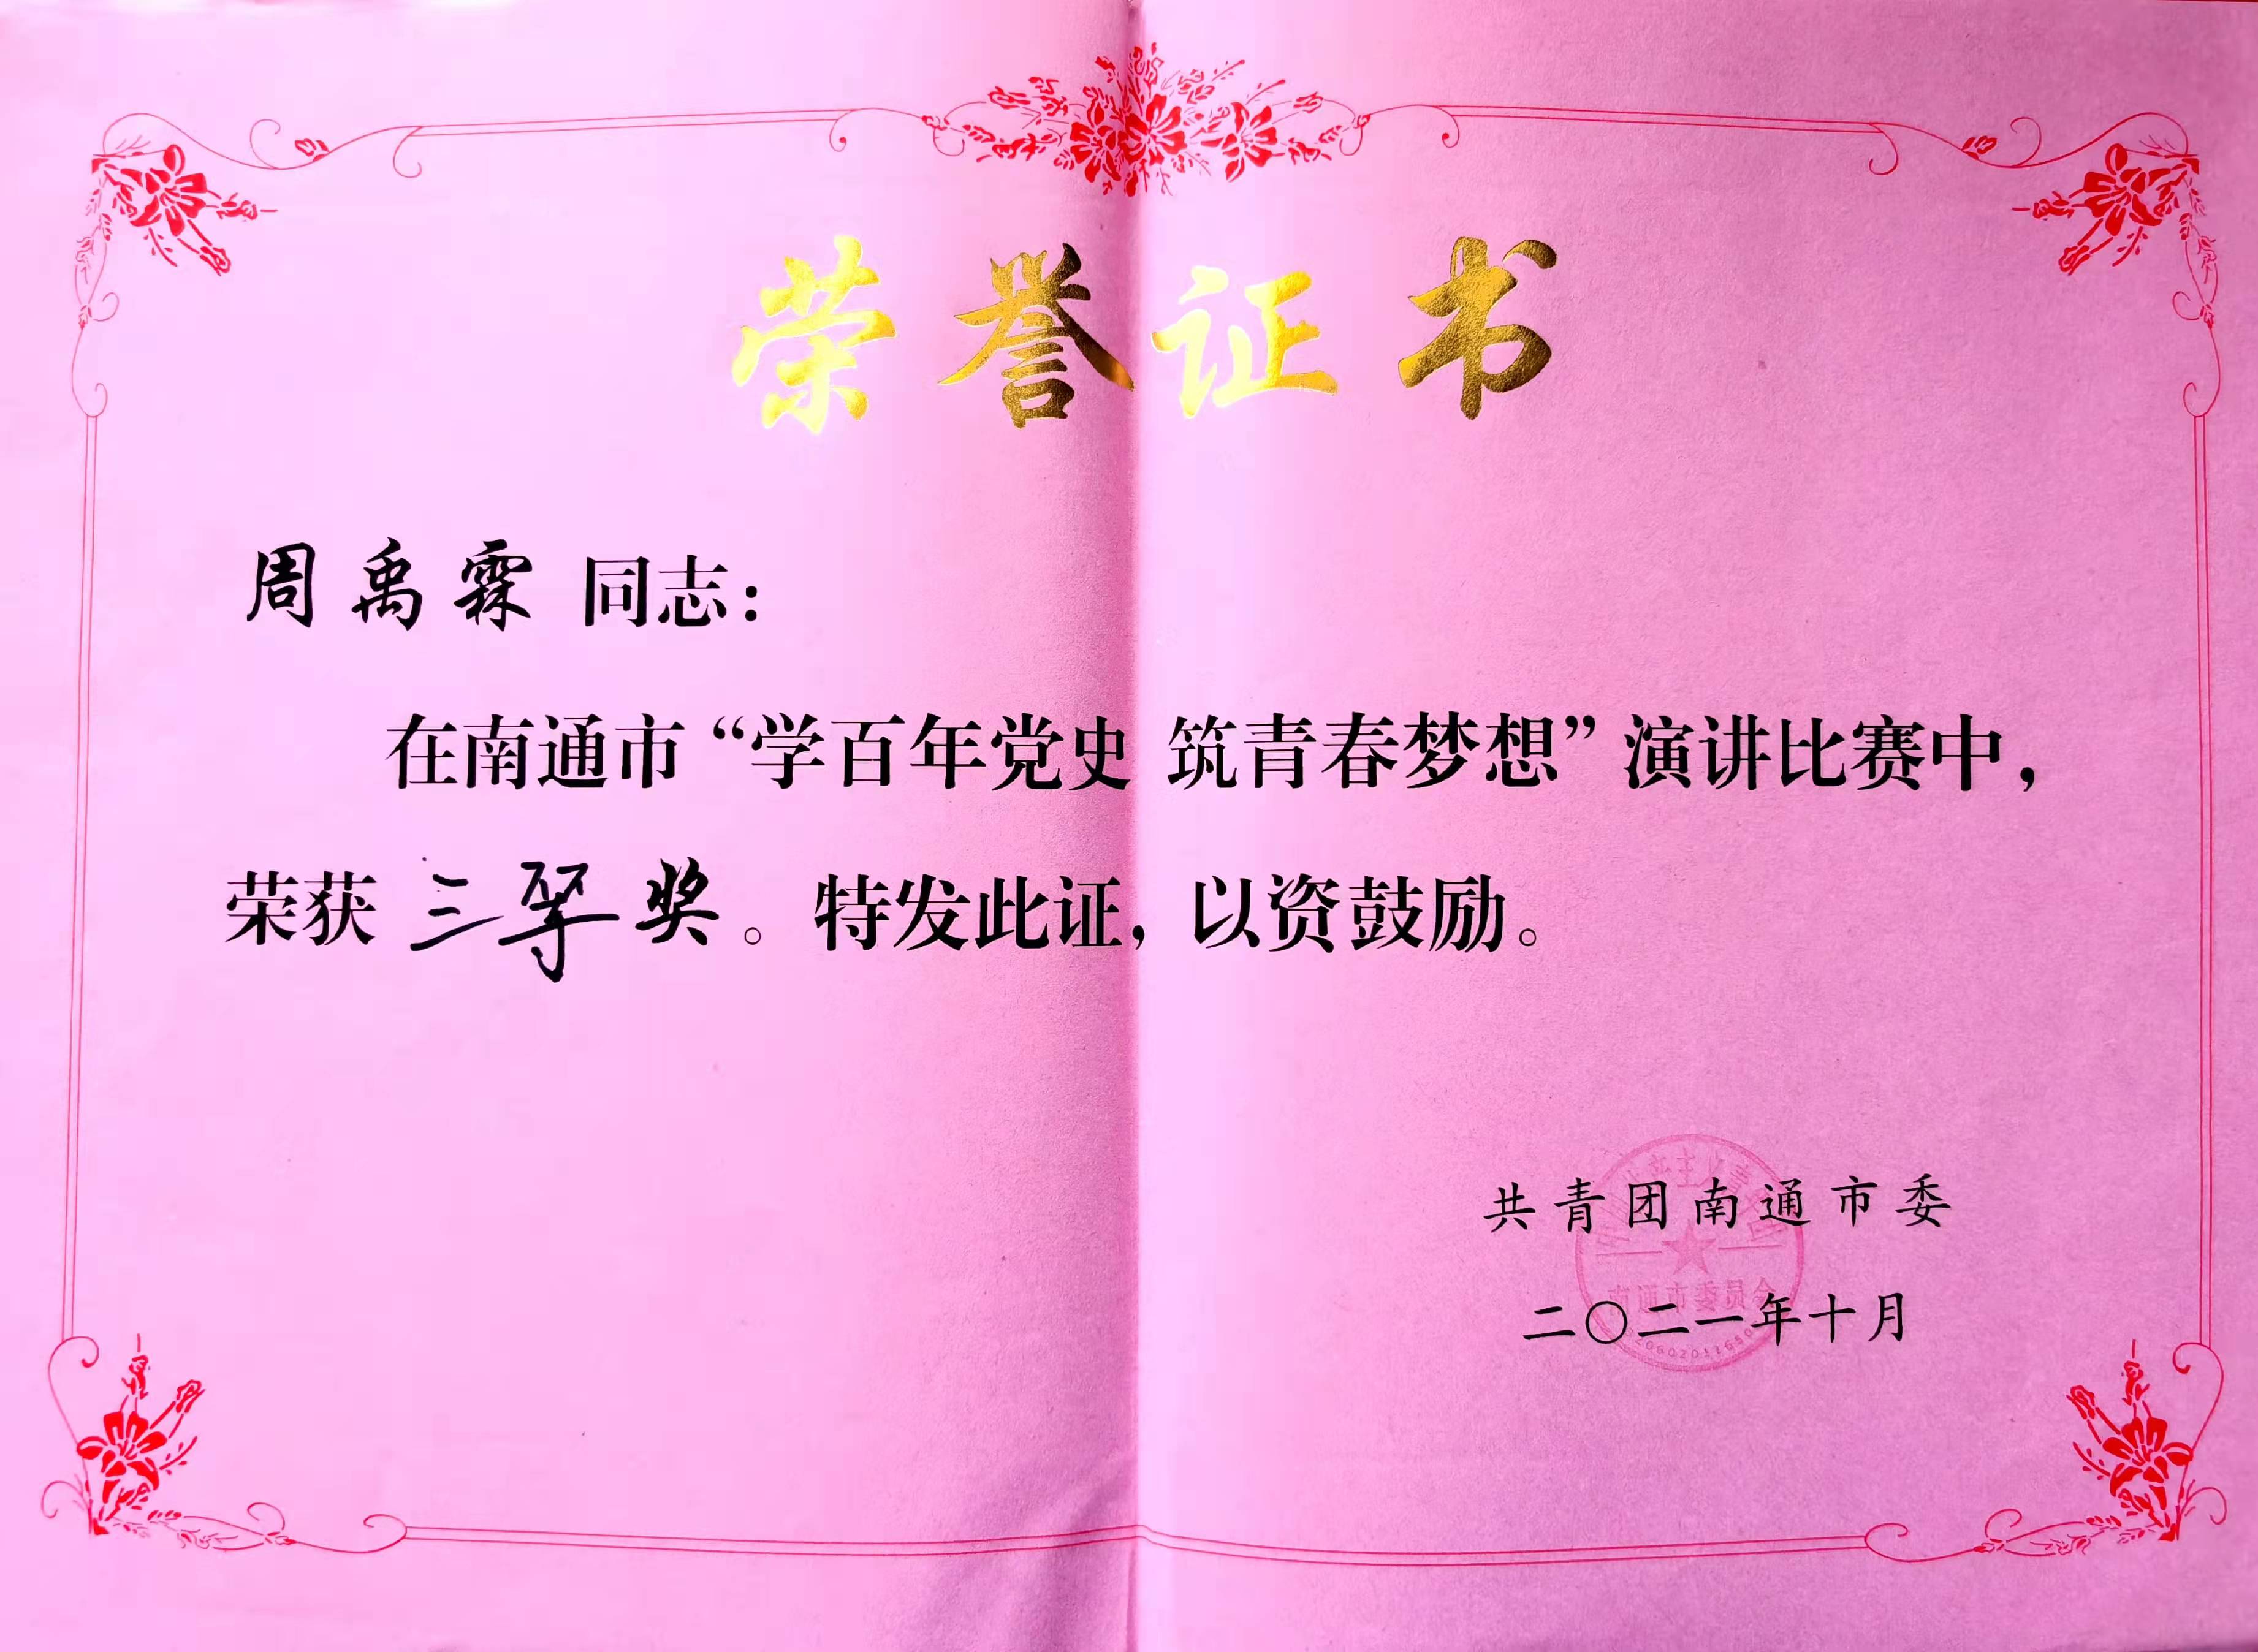 荣誉证书
周禹霖 同志：
在南通市“学百年党史 筑青春梦想”演讲比赛中，
荣获 三等奖。特发此证，以资鼓励。
共青团南通市委
南通市委员会
二〇二一年十月